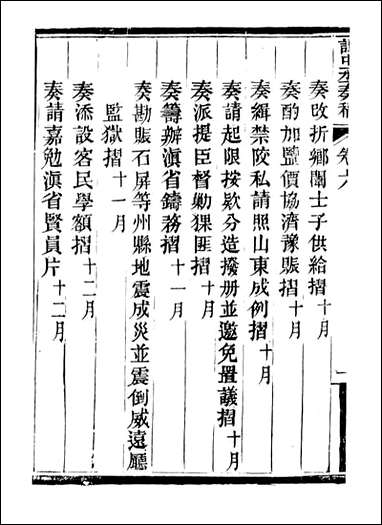 奏改折鄉闈士子供給摺十月
奏酌加鹽價協濟豫賑摺十月
奏緝禁陝私請照山東成例摺十月
奏請起限按欵分造撥册並邀免置議摺十月
奏派提臣督勦猓匪摺十月
奏籌辦滇省鑄務摺十一月
奏勘賑石屏等州縣地震成災並震倒威遠廳
監獄摺十一月
奏添設客民學額摺十二月
奏請嘉勉滇省賢員片十二月